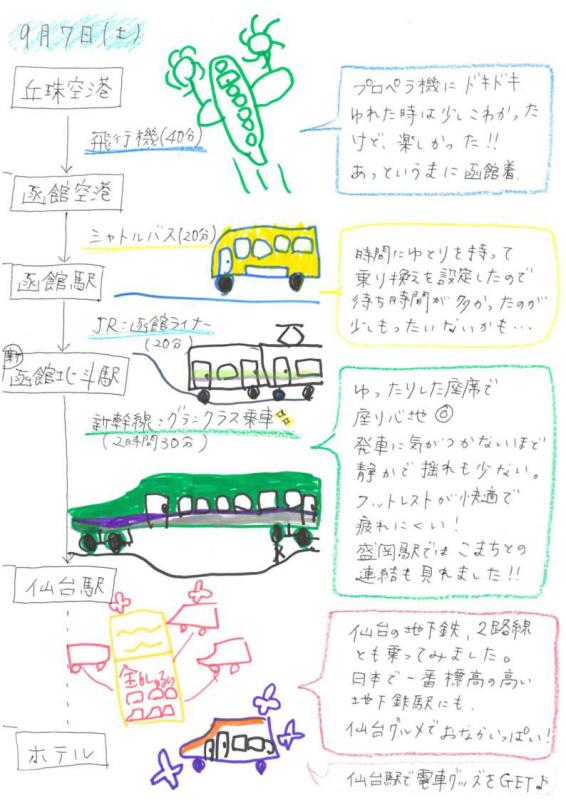 9月7日(土)
丘珠空港
飛行機(40分)
プロペラ機にドキドキ
ゆれた時は少しこわかった
けど、楽しかった!!
あっというまに函館着.
函館空港
シャトルバス(20分)
時間にゆとりを持って
乗り換えを設定したので
待ち時間が多かったのが
少しもったいないかも…
函館駅
JR:函館ライナー
(20分)
新
函館北斗駅
新幹線:グランクラス乗車
(2時間30分)
ゆったりした座席で
座り心地◎
発車に気がつかないほど
静かで揺れも少ない。
フットレストが快適で
疲れにくい!
盛岡駅ではこまちとの
連結も見れました!!
仙台駅
仙台の地下鉄,2路線
とも乗ってみました。
日本で一番標高の高い
地下鉄駅にも.
仙台グルメでおなかいっぱい!
ホテル
仙台駅で電車グッズをGET♪